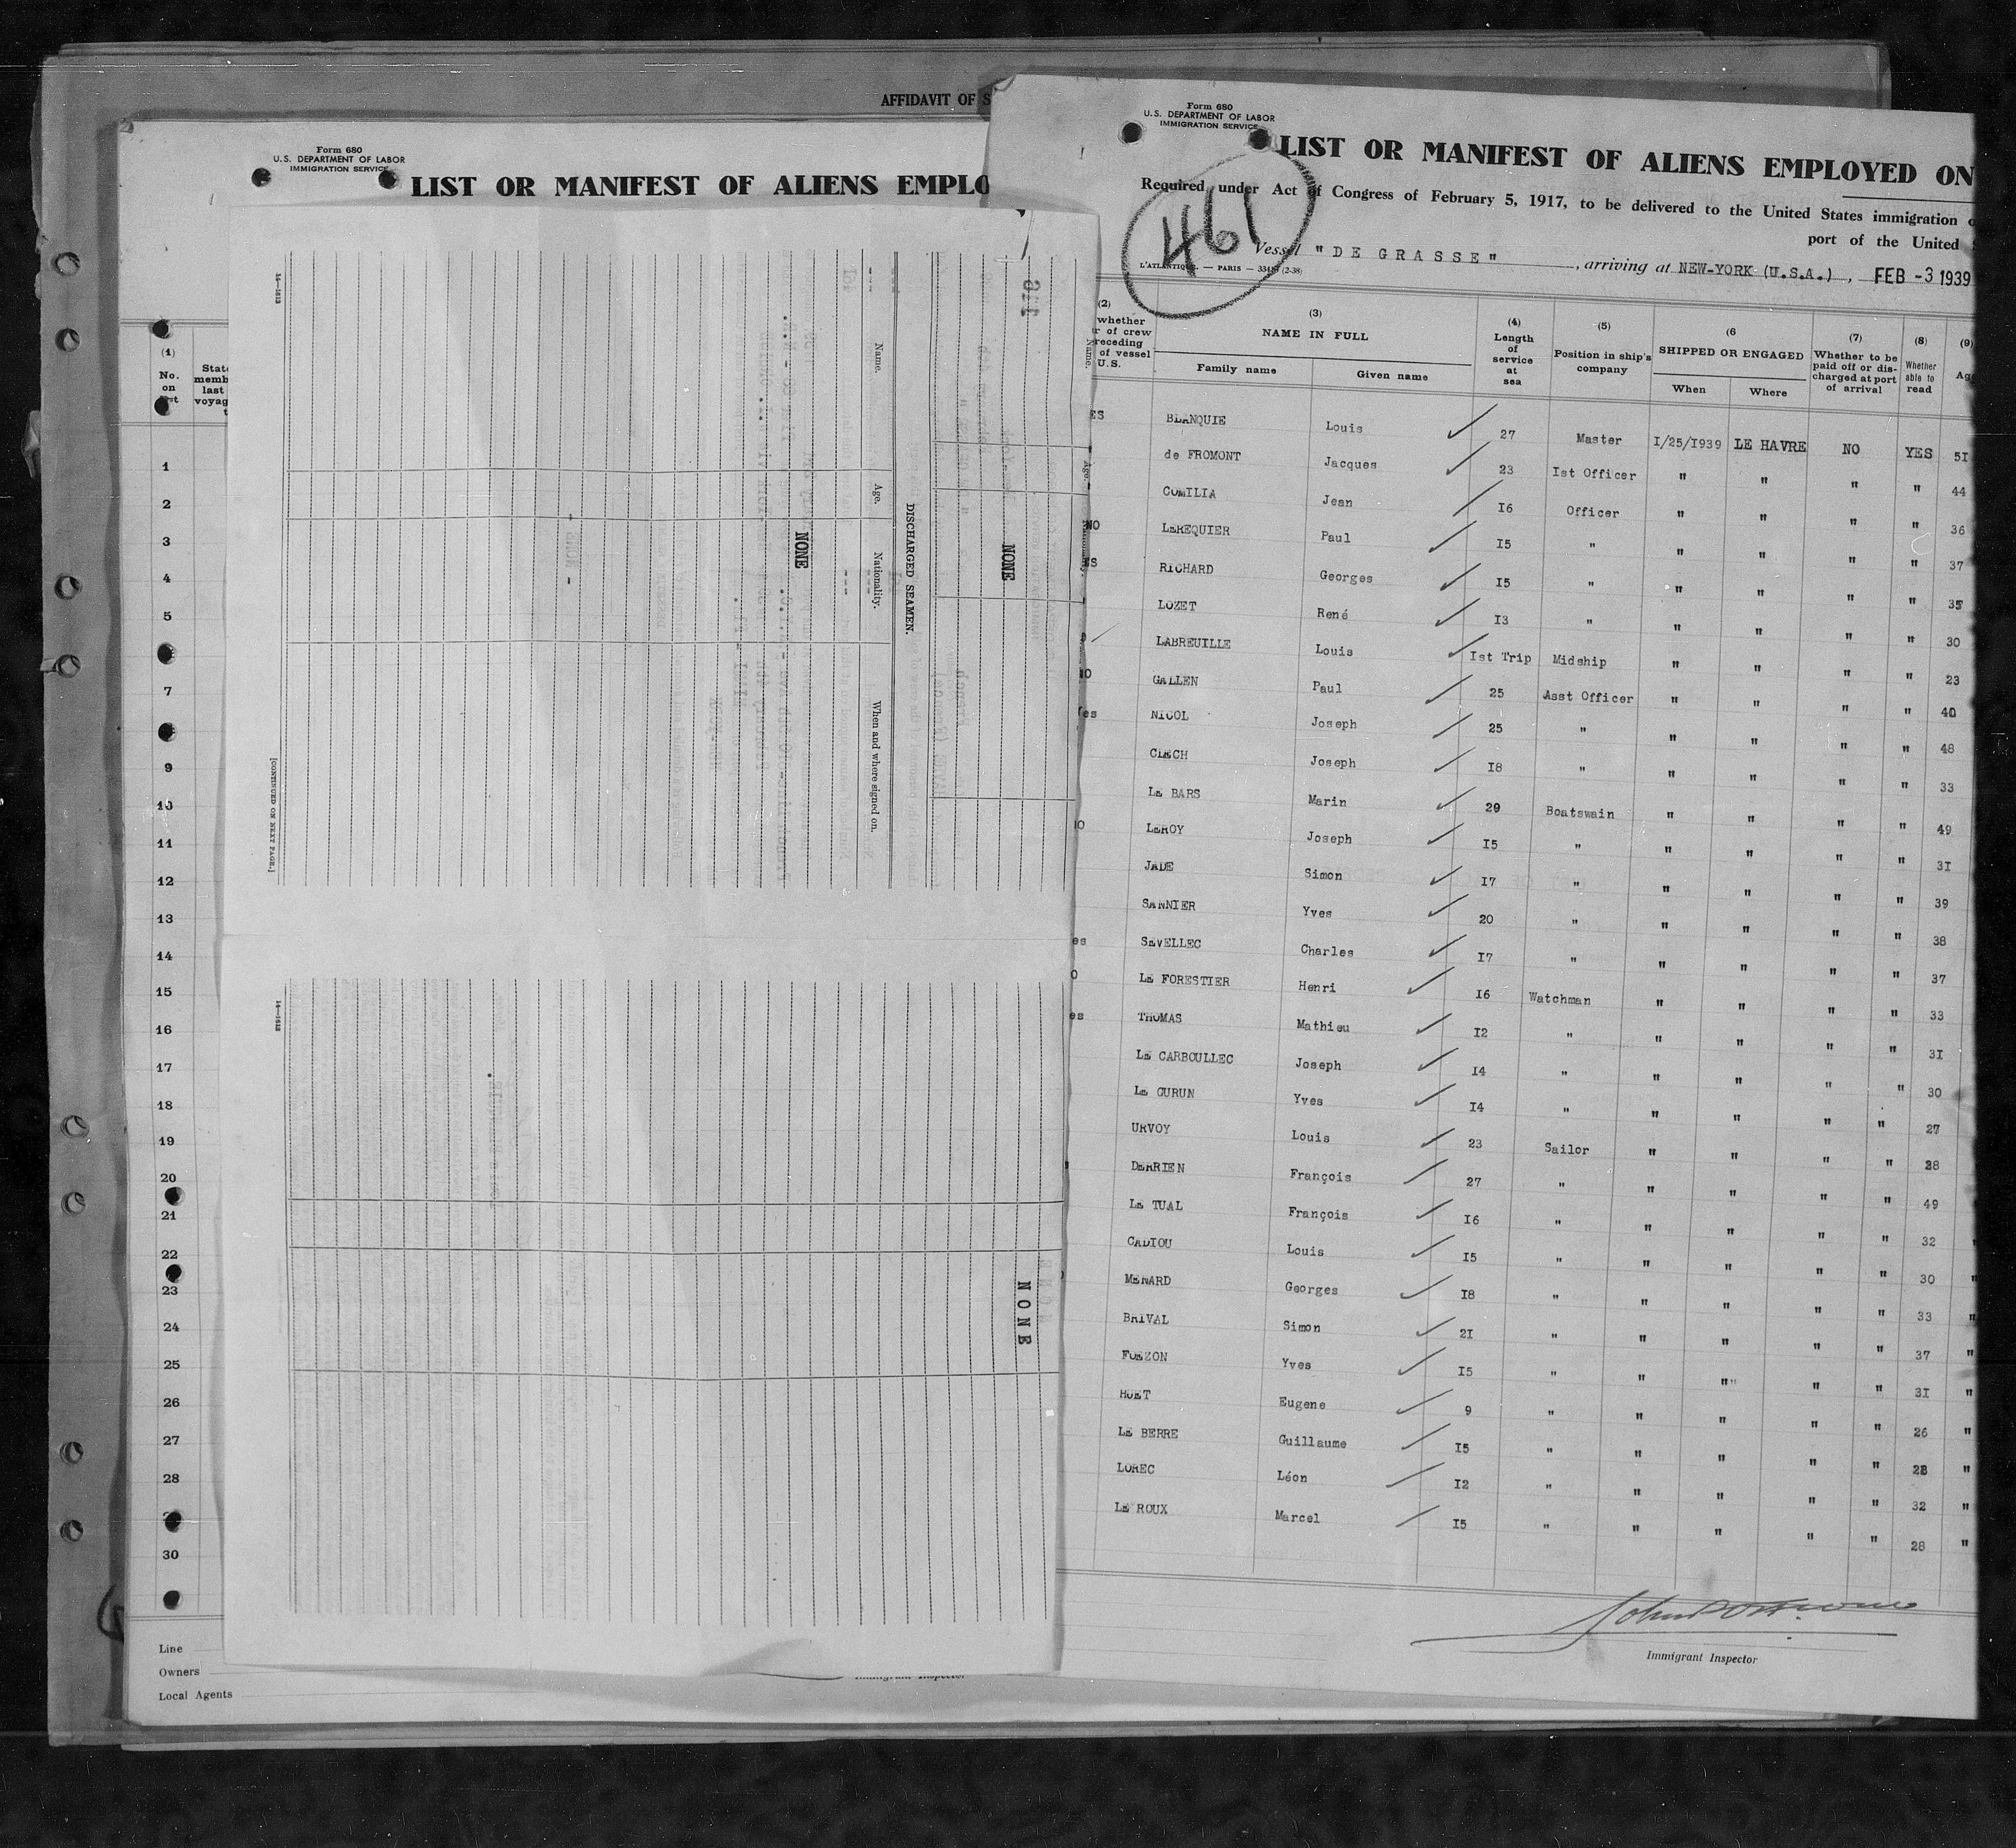 AFFIDAVIT OF S
Form 680
U.S. DEPARTMENT OF LABOR
IMMIGRATION SERVICE
LIST OR MANIFEST OF ALIENS EMPLO
(1)
No.
on
State
memb
last
voyag
1
2
3
4
5
7
9
10
11
12
13
14
15
16
17
18
19
20
21
22
23
24
25
26
27
28
30
Line
Owners
Local Agents
Immigrant Inspector
16—1513
Name.
Age.
Nationality.
When and where signed on.
NONE
DISCHARGED SEAMEN.
NONE
Name.
Age.
[CONTINUED ON NEXT PAGE.]
NONE
Form 680
U.S. DEPARTMENT OF LABOR
IMMIGRATION SERVICE
LIST OR MANIFEST OF ALIENS EMPLOYED ON
Required under Act of Congress of February 5, 1917, to be delivered to the United States immigration
port of the United
461
Vessel "DE GRASSE", arriving at NEW-YORK (U.S.A.), FEB -3 1939
L'ATLANTIQUE. — PARIS — (2-38)
(2) (3) (4) (5) (6 (7) (8) (9)
whether
r of crew
receding
of vessel
U.S.
NAME IN FULL
Family name Given name
Length
of
service
at
sea
Position in ship's
company
SHIPPED OR ENGAGED
When Where
Whether to be
paid off or dis-
charged at port
of arrival
Whether
able to
read
Ag
ES BLANQUIE Louis 27 Master 1/25/1939 LE HAVRE NO YES 51
de FROMONT Jacques 23 Ist Officer " " " " 44
COMILIA Jean 16 Officer " " " " 36
NO LEREQUIER Paul 15 " " " " " 37
ES RICHARD Georges 15 " " " " " 35
LOZET René 13 " " " " " 30
LABREUILLE Louis Ist Trip Midship " " " " 23
NO GALLEN Paul 25 Asst Officer " " " " 40
Yes NICOL Joseph 25 " " " " " 48
CLECH Joseph 18 " " " " " 33
LE BARS Marin 29 Boatswain " " " " 49
LEROY Joseph 15 " " " " " 31
JADE Simon 17 " " " " " 39
SANNIER Yves 20 " " " " " 38
es SEVELLEC Charles 17 " " " " " 37
LE FORESTIER Henri 16 Watchman " " " " 33
es THOMAS Mathieu 12 " " " " " 31
LE CARBOULLEC Joseph 14 " " " " " 30
LE GURUN Yves 14 " " " " " 27
URVOY Louis 23 Sailor " " " " 38
DERRIEN François 27 " " " " " 49
LE TUAL François 16 " " " " " 32
CADIOU Louis 15 " " " " " 30
MENARD Georges 18 " " " " " 33
BRIVAL Simon 21 " " " " " 37
FOEZON Yves 15 " " " " " 31
HUET Eugene 9 " " " " " 26
LE BERRE Guillaume 15 " " " " " 28
LOREC Léon 12 " " " " " 32
LE ROUX Marcel 15 " " " " " 28
Immigrant Inspector